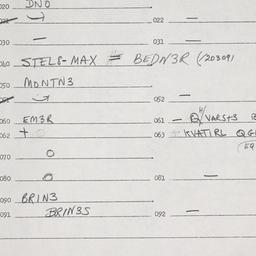 020 DNO
022 —
030 — 031 —
040 STELS-MAX = BEDN3R (/20309)
050 MONTN3
052 —
060 EM3R 061 — VARST3
062 + 063 KVATIRL QG
(EQ
070 O
080 O 081 —
090 BRIN3
091 BRIN3S 092 —